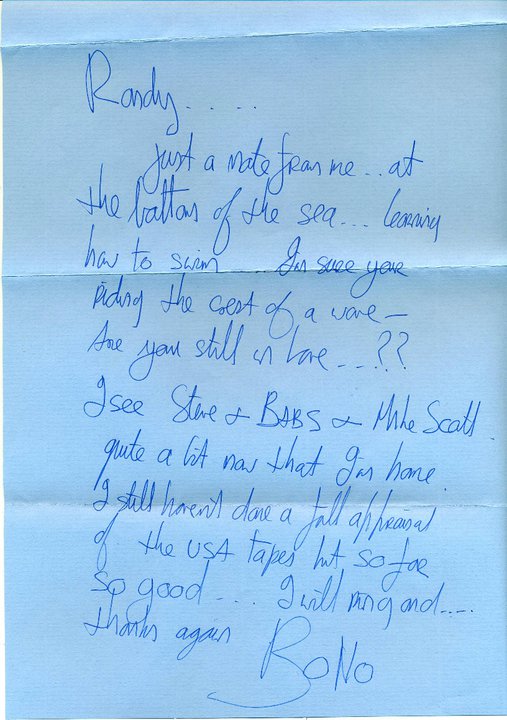 Randy.....
Just a note from me.. at
the bottom of the sea... learning
how to swim .... I'm sure you're
riding the crest of a wave —
Are you still in love...??
I see Steve + BABS + Mike Scott
quite a lot now that I'm home.
I still haven't done a full appraisal
of the USA tapes but so far
so good... I will ring and....
thanks again
BONO